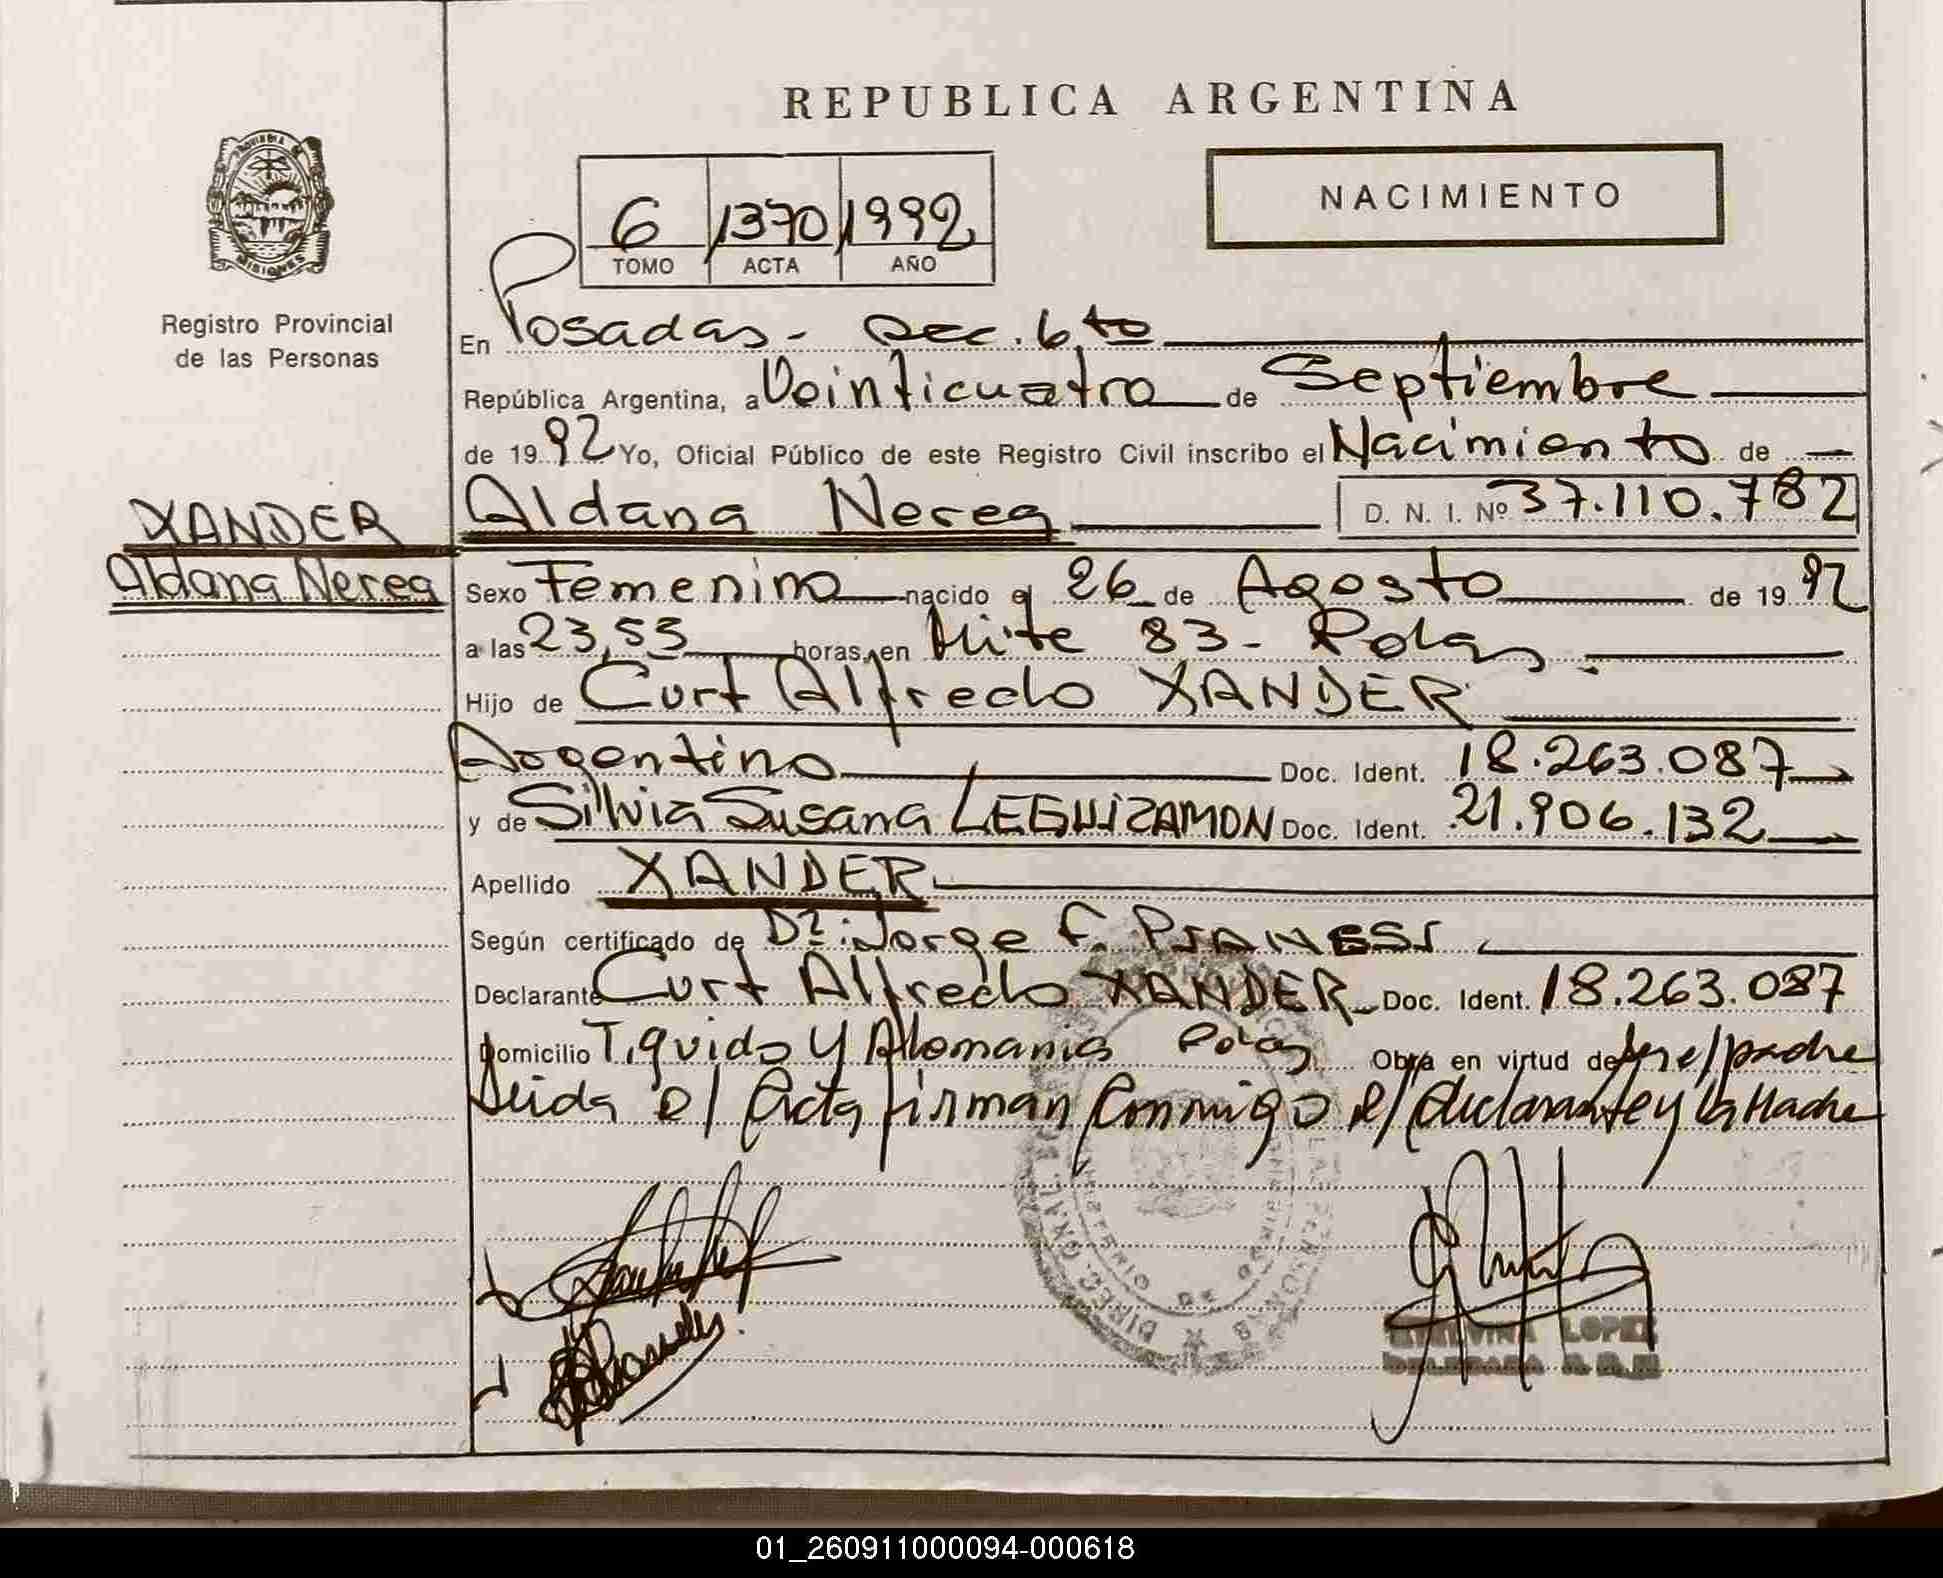 REPUBLICA ARGENTINA
NACIMIENTO
6 1370 1992
TOMO ACTA AÑO
MISIONES
Registro Provincial
de las Personas
En Posadas - Sec. 6to
República Argentina, a Veinticuatro de Septiembre
de 1992 Yo, Oficial Público de este Registro Civil inscribo el Nacimiento de
XANDER
Aldana Nerea
Aldana Nerea D. N. I. Nº 37.110.782
Sexo Femenino nacido el 26 de Agosto de 1992
a las 23,53 horas, en Mitre 83 - Pdas
Hijo de Curt Alfredo XANDER
Argentino Doc. Ident. 18.263.087
y de Silvia Susana LEGUIZAMON Doc. Ident. 21.906.132
Apellido XANDER
Según certificado de Dr. Jorge F. PIANESI
Declarante Curt Alfredo XANDER Doc. Ident. 18.263.087
Domicilio y Alemania Pdas Obra en virtud de ser el padre
Leida el Acta firman conmigo el declarante y la Madre
LOPEZ
01_260911000094-000618